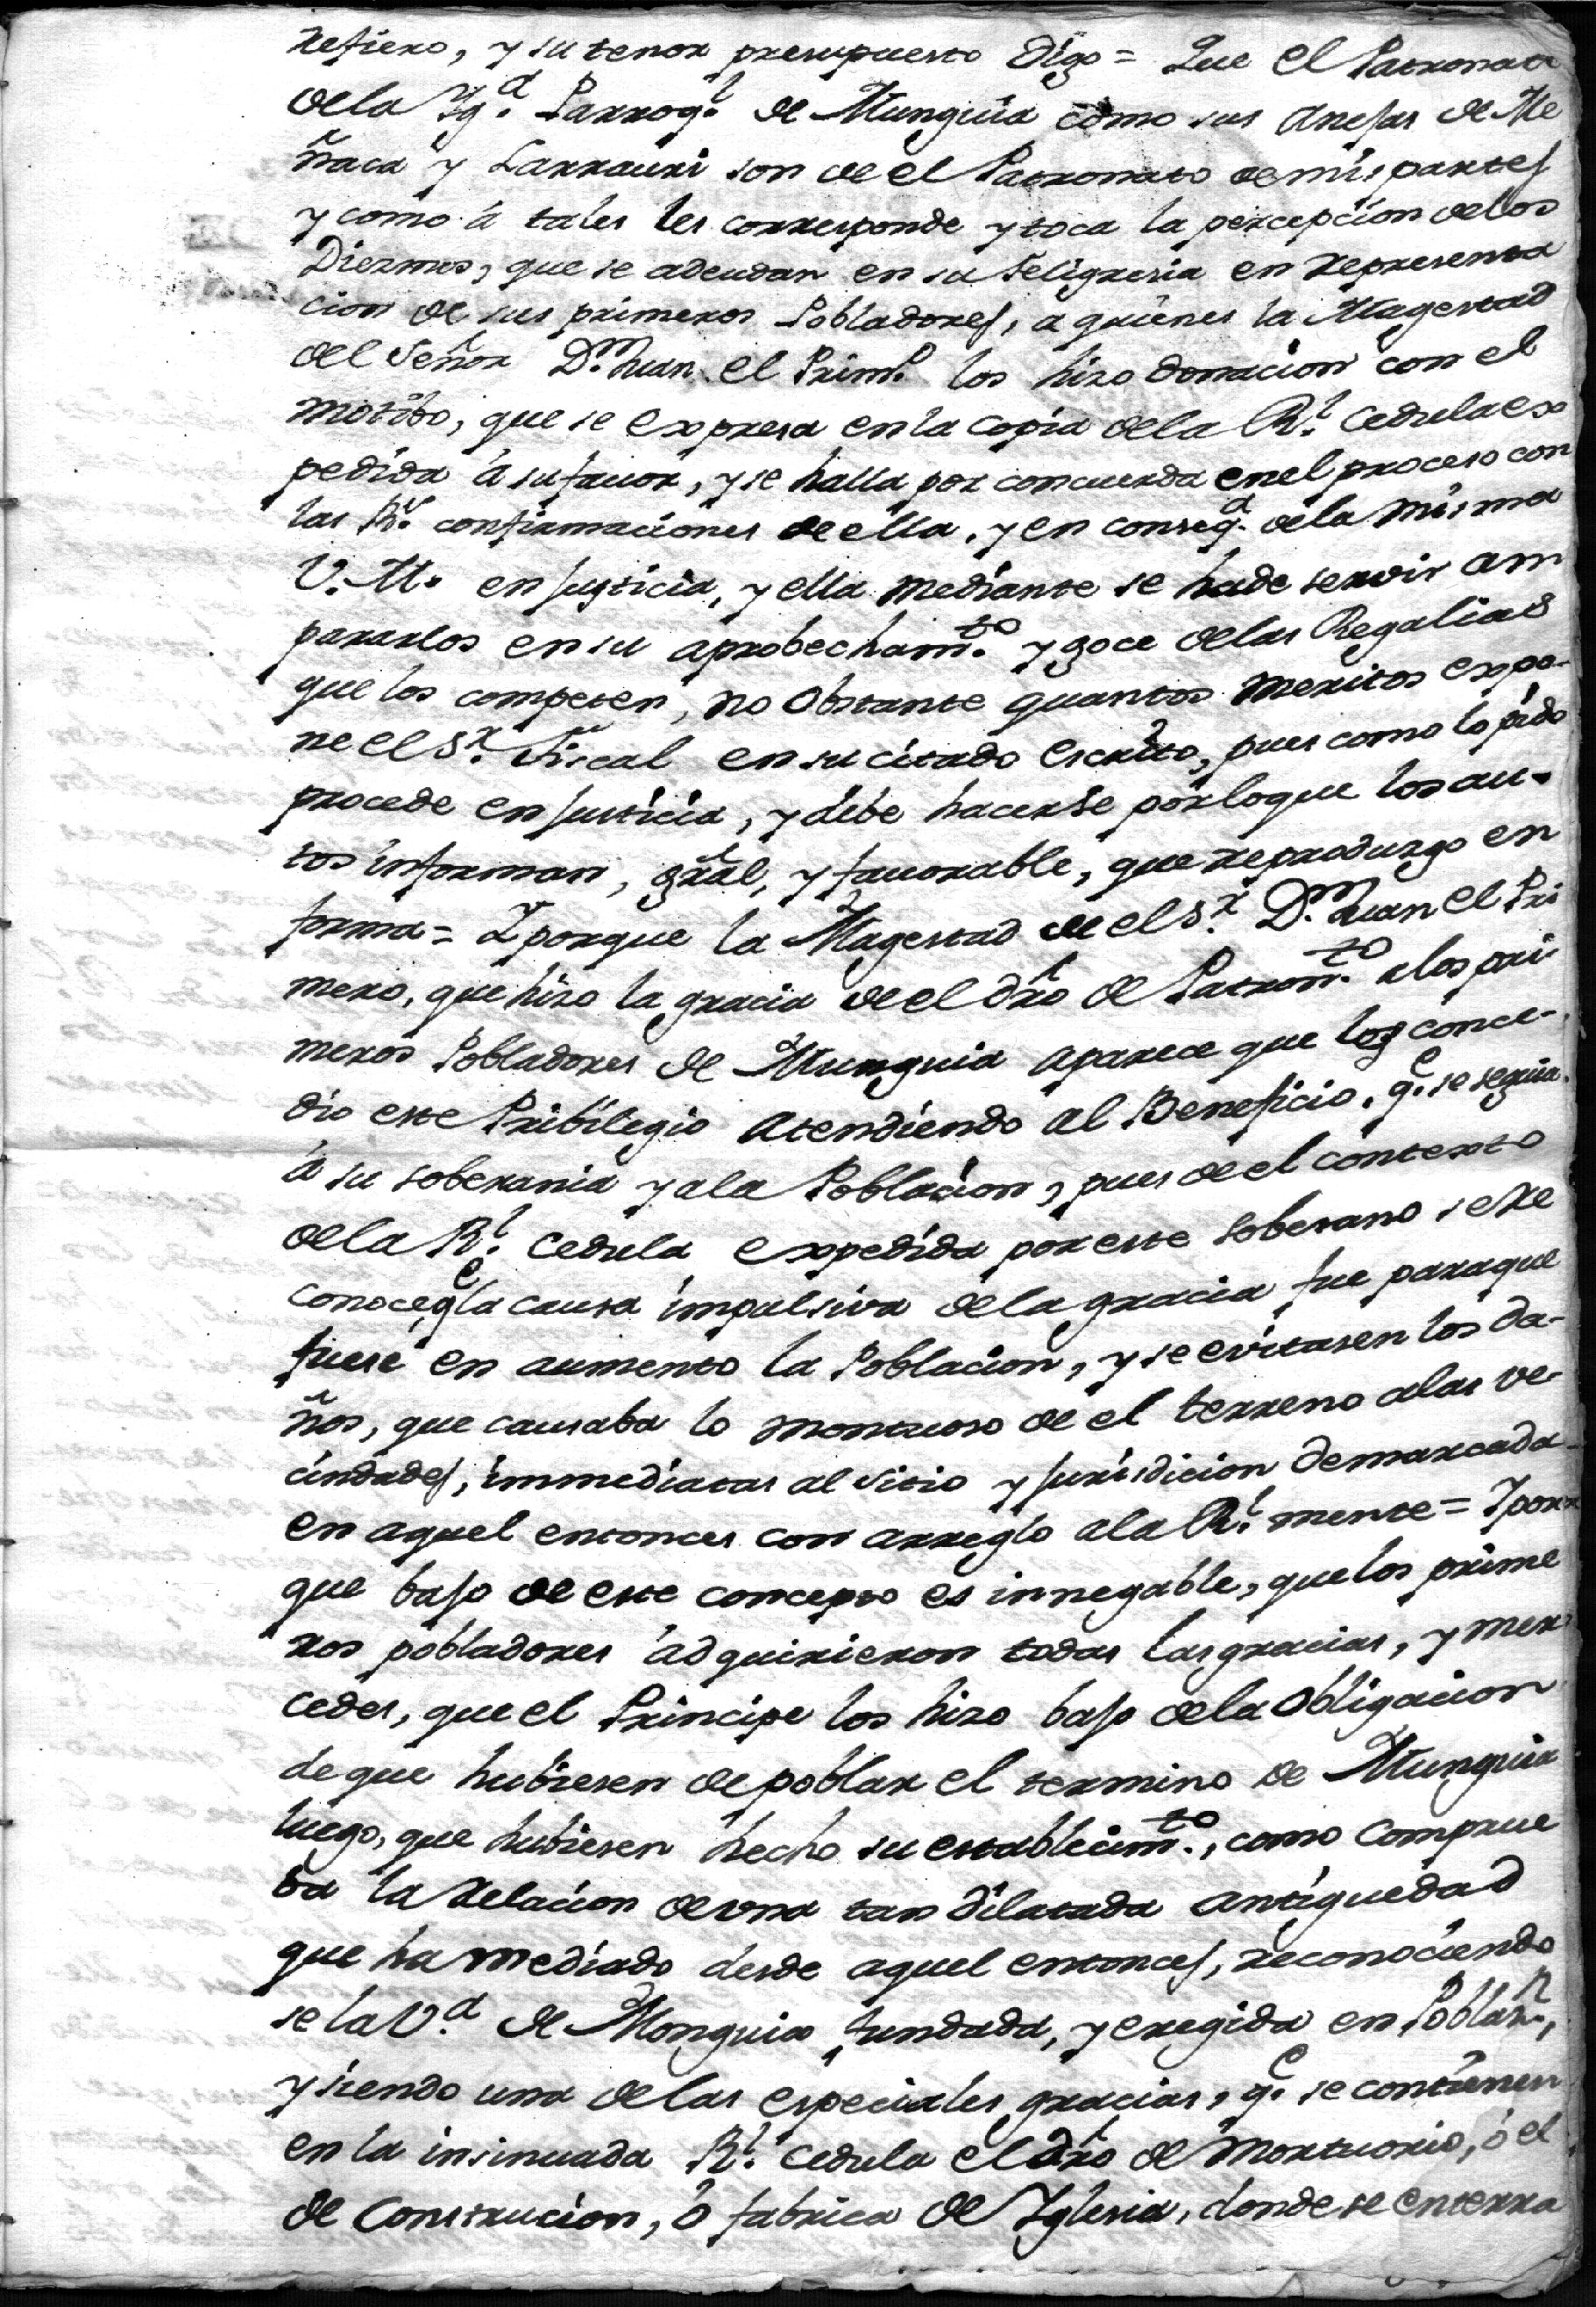 refiero, y su tenor presupuesto Digo = Que el Patronato
de la Yg.ª Parroq.l de Munguia como sus Anejas de Me
ñaca y Larrauri son de el Patronato de mis partes
y como á tales les corresponde y toca la percepcion de los
Diezmos, que se adeudan en su Feligresia en representa
cion de sus primeros Pobladores, a quienes la Magestad
del Señor D.n Juan el Prim.o los hizo donacion con el
motibo, que se expresa en la copia de la R.l Cedula ex
pedida á su favor, y se halla por concuerda en el proceso con
las R.s confirmaciones de ella, y en conseq.ª de la misma
V. M. en justicia, y ella mediante se ha de servir am
pararlos en su aprobecham.to y goce de las Regalias
que los competen, no obstante quantos meritos expo-
ne el S.r Fiscal en su citado escrito, pues como lo pido
procede en justicia, y debe hacerse por lo que los au-
tos informan, gral, y favorable, que reproduzgo en
forma = Y porque la Magestad de el S.r D.n Juan el Pri
mero, que hizo la gracia de el dro de Patron.to a los pri
meros Pobladores de Munguia aparece que los conce-
dio este Pribilegio atendiendo al Beneficio, q.e se seguia
á su soberania y a la Poblacion, pues de el contexto
de la R.l Cedula expedida por este soberano se re
conoce q.e la causa impulsiva de la gracia fue para que
fuese en aumento la Poblacion, y se evitasen los da-
ños, que causaba lo montuoso de el terreno a las ve-
cindades, immediatas al sitio y jurisdicion demarcada
en aquel entonces con arreglo a la R.l mente = Y por
que bajo de este concepto es innegable, que los prime
ros pobladores adquirieron todas las gracias, y mer
cedes, que el Principe los hizo bajo de la obligacion
de que hubiesen de poblar el termino de Munguia
luego, que hubiesen hecho su establecim.to, como comprue
ba la relacion de una tan dilatada antiguedad
que ha mediado desde aquel entonces, reconociendo
se la V.ª de Monguia fundada, y eregida en Poblaz.n,
y siendo una de las especiales gracias, q.e se contienen
en la insinuada R.l Cedula el dro de Mortuorio, ó el
de Construcion, ó fabrica de Yglesia, donde se enterra